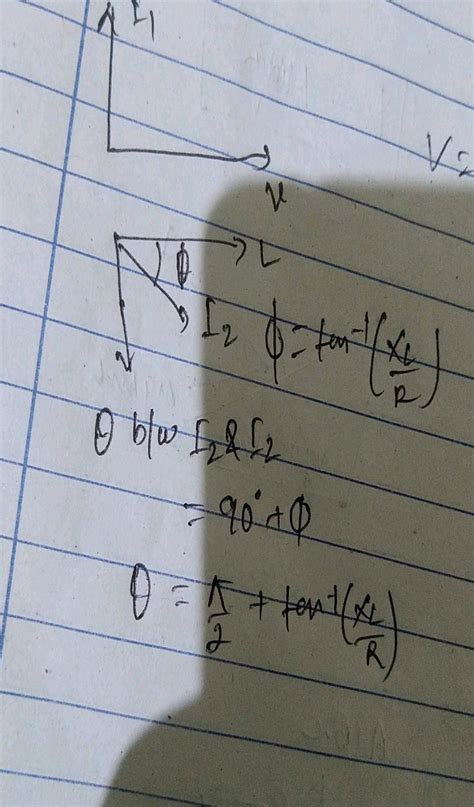 I₁
V =
V
L
ϕ
I₂ ϕ = tan⁻¹(XL/R)
θ b/w I₂ & I₂
= 90° + ϕ
θ = π/2 + tan⁻¹(XL/R)